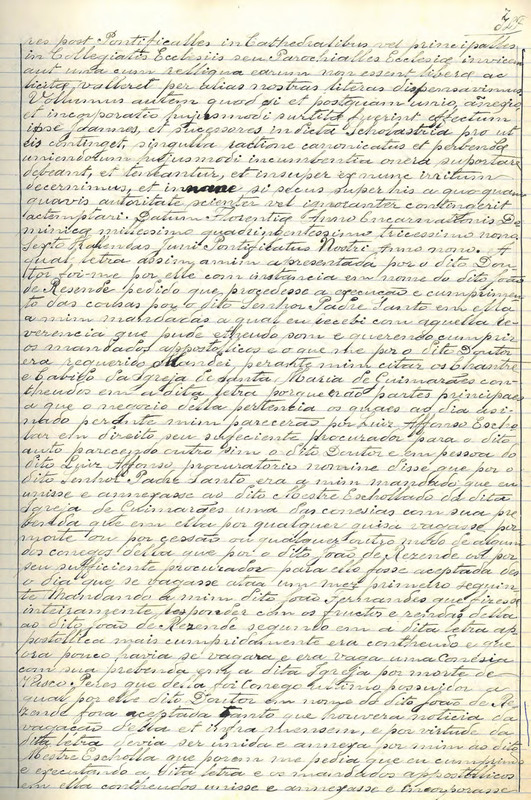 res post Pontificalles in Cathedralibus vel principalles
in Collegiatis Ecclesiis seu Parochialles Ecclesiæ invicem
aut una cum relliqua earum non essent libere ac
licite, valleret per alias nostras literas dispensavimus
Volumus autem quod si et postquam unio, annexio
et incorporatio hujusmodi surtita fuerint effectum
ipse Joannes, et successores in dicta Scholastria pro ut
eis continget, singulla ractione canonicatus et perbenda
uniendorum hujusmodi incumbentia onera suportare
debeant, et teneantur, et insuper ex nunc irritum
decernimus, et innane si secus super his a quoquam
quavis autoritate scienter vel ignoranter contengerit
actemptari. Datum Florentiæ Anno Encarnationis Do
minicæ millessimo quadringentessimo tricessimo nono
Sexto Kalendas Junii Pontificatus Nostri Anno nono. A
qual letra assim a mim apresentada por o dito Dou-
ttor foi-me por elle com instancia em nome do dito João
de Resende pedido que procedesse a execução e cumprimen
to das cousas por o dito Senhor Padre Santo em ella
a mim mandadas a qual eu recebi com aquella re-
verencia que pude e devo som e querendo cumprir
os mandados appostolicos e o que me por o dito Doutor
era requerido Mandei perante mim citar os Chantre
e Cabido da Igreja de Santa Maria de Guimarães con-
theudos em a dita letra porque erão partes principaes
a que o negocio della pertencia os quaes ao dia asi-
nado perante mim pareceras por Luiz Affonso Escho
lar em direito, seu sufeciente procurador para o dito
auto parecendo outro sim o dito Doutor e em pessoa do
dito Luiz Affonso, procuratorio nomine disse que por o
dito Senhor Padre Santo, era a mim mandado que eu
unisse e annexasse ao dito Mestre Eschollado da dita
Igreja de Guimarães uma das conesias com sua pre
benda que em ella por qualquer guisa vagasse por
morte ou por cessão ou qualquer outro modo de algum
dos conegos della que por o dito João de Rezende ou por
seu sufficiente procurador para ello fosse aceptada des
o dia que se vagasse ataa um mez primeiro seguin
te Mandando a mim dito João Fernandes que fizesse
inteiramente responder com os fructos e rendas della
ao dito João de Rezende segundo em a dita letra ap
postollica mais cumpridamente era contheudo e que
ora pouco havia se vagara e era vaga uma Conesia
com sua prebenda em a dita Igreja por morte de
Vasco Peres que della foi Conego ultimo possuidor a
qual por elle dito Doutor em nome do dito João de Re
zende fora aceptada tanto que houvera noticia da
vagação della et infra mensem, e por virtude da
dita letra devia ser unida e annexa por mim ao dito
Mestre Escholla que porem me pedia que eu cumprindo
e executando a dita letra e os mandados appostolicos
em ella contheudos unisse e annexasse e encorporasse